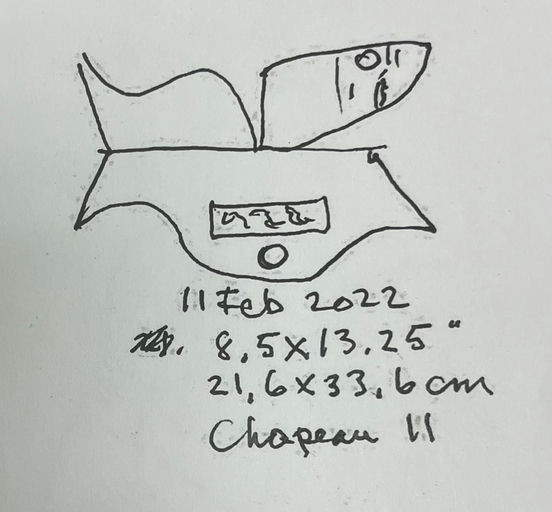 11 Feb 2022
8.5x13.25"
21,6x33,6cm
Chapeau 11